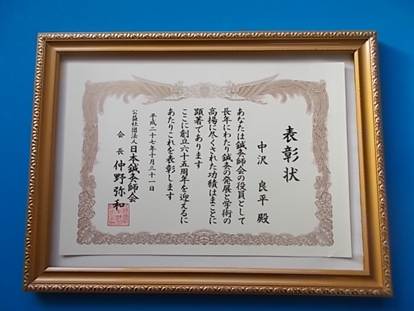 表彰状
中沢 良平 殿
あなたは鍼灸師会の役員として
長年にわたり鍼灸の発展と学術の
高揚に尽くされた功績はまことに
顕著であります
ここに創立六十五周年を迎えるに
あたりこれを表彰します
平成二十七年十月三十一日
公益社団法人日本鍼灸師会
会長 仲野弥和